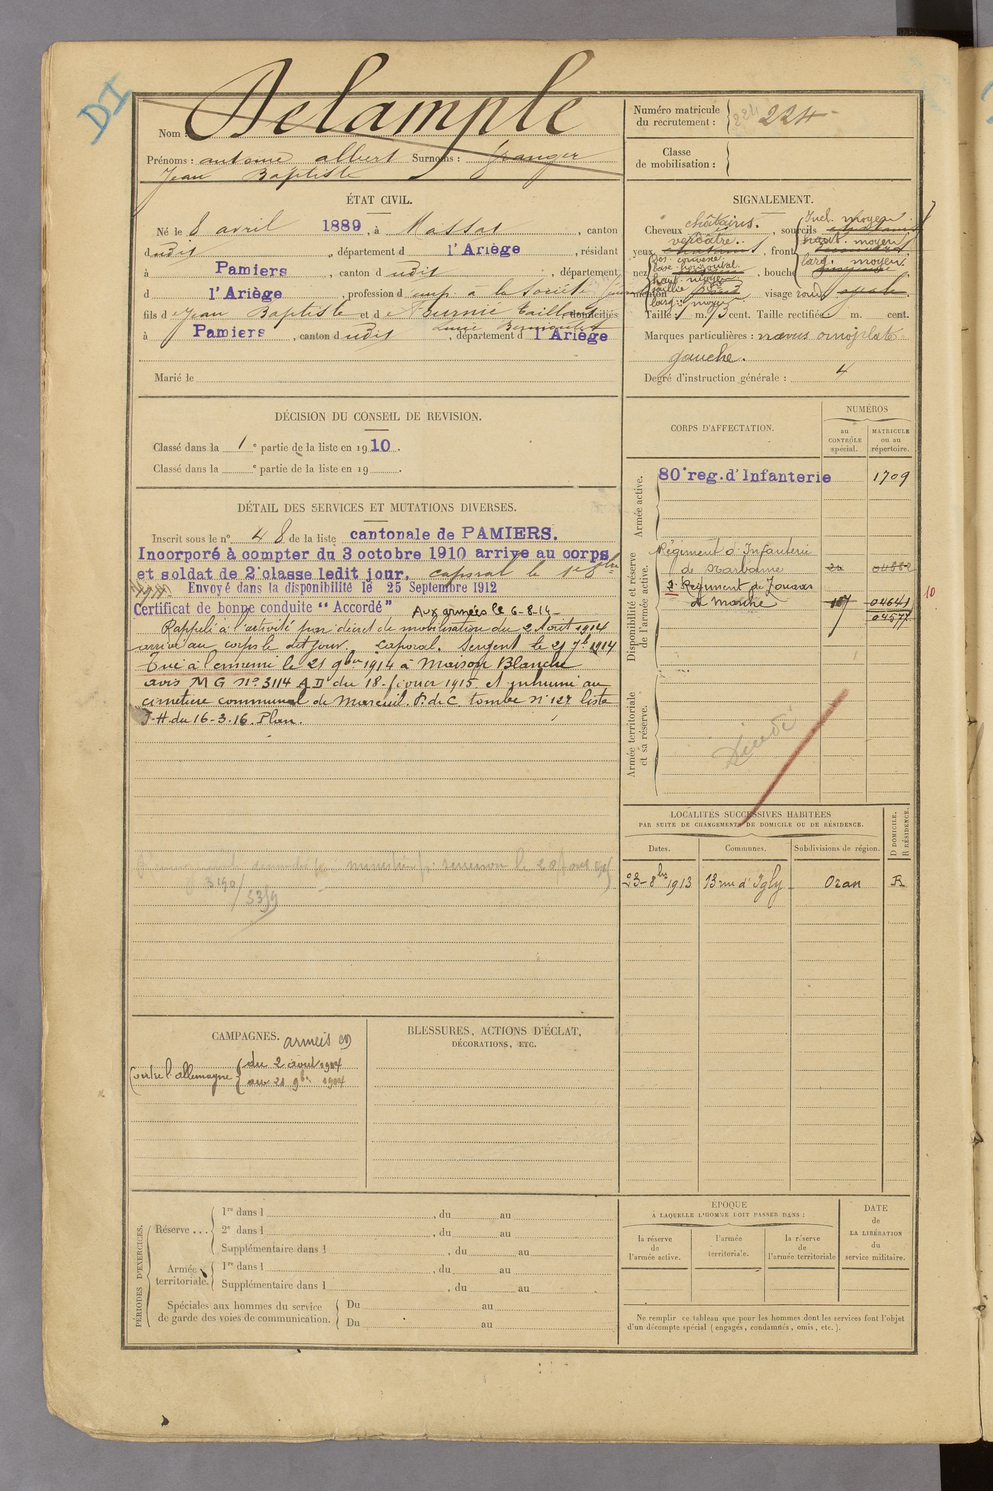 DI
Nom : Delample
Prénoms : antome albert Surnoms : Granger
Jean Baptiste
Numéro matricule du recrutement : 224
Classe de mobilisation :
ÉTAT CIVIL.
Né le 8 avril 1889, à Massat, canton
dudit, département d l'Ariège, résidant
à Pamiers, canton d udit, département
d l'Ariège, profession d emp. à la Société
fils d e Jean Baptiste et d e Burnié domiciliés
à Pamiers, canton d udit, département d l'Ariège
Marié le
SIGNALEMENT.
Cheveux châtains. , sourcils
Incl. moyen
yeux verdâtre. , front
haut. moyen
larg. moyen
nez , bouche
dos. convexe
base horizontal
haut. moyen
saillie
larg. moyen
menton visage rond ovale
Taille : 1 m. 73 cent. Taille rectifiée m. cent.
Marques particulières : nævus omoplate
gauche.
Degré d'instruction générale : 4
DÉCISION DU CONSEIL DE REVISION.
Classé dans la 1e partie de la liste en 1910.
Classé dans la e partie de la liste en 19 .
CORPS D'AFFECTATION.
NUMÉROS
au CONTRÔLE spécial.
MATRICULE ou au répertoire.
Armée active.
80e reg. d'Infanterie 1709
Disponibilité et réserve de l'armée active.
Régiment d'Infanterie
de Narbonne
2. Régiment de Zouaves
de marche 04641
04577
10
Armée territoriale et sa réserve.
Décédé
DÉTAIL DES SERVICES ET MUTATIONS DIVERSES.
Inscrit sous le n° 48 de la liste cantonale de PAMIERS.
Incorporé à compter du 3 octobre 1910 arrive au corps
et soldat de 2e classe ledit jour, caporal le 1er 8bre
1911. Envoyé dans la disponibilité le 25 Septembre 1912
Certificat de bonne conduite "Accordé" Aux armées le 6-8-14
Rappelé à l'activité par décret de mobilisation du 2 Août 1914
arrivé au corps le dit jour. Caporal. Sergent le 21 7bre 1914
Tué à l'ennemi le 21 9bre 1914 à Maison Blanche
avis M G n° 3114 A D du 18 février 1915 et inhumé au
cimetière communal de Marœuil. P. de C tombe n° 127 liste
J-H du 16-3-16. Plan.
3190
/ 5359
LOCALITÉS SUCCESSIVES HABITÉES
PAR SUITE DE CHANGEMENTS DE DOMICILE OU DE RÉSIDENCE.
Dates. Communes. Subdivisions de région. D DOMICILE. R RÉSIDENCE.
23-8bre 1913 13 rue d'Igly Oran R
CAMPAGNES.
armées
Contre l'allemagne du 2 août 1914
au 21 9bre 1914
BLESSURES, ACTIONS D'ÉCLAT,
DÉCORATIONS, ETC.
PÉRIODES D'EXERCICES.
Réserve ... 1re dans l , du au
2e dans l , du au
Supplémentaire dans l , du au
Armée territoriale. 1re dans l , du au
Supplémentaire dans l , du au
Spéciales aux hommes du service de garde des voies de communication. Du au
Du au
ÉPOQUE
A LAQUELLE L'HOMME DOIT PASSER DANS :
la réserve de l'armée active.
l'armée territoriale.
la réserve de l'armée territoriale
DATE de LA LIBÉRATION du service militaire.
Ne remplir ce tableau que pour les hommes dont les services font l'objet
d'un décompte spécial (engagés, condamnés, omis, etc.).